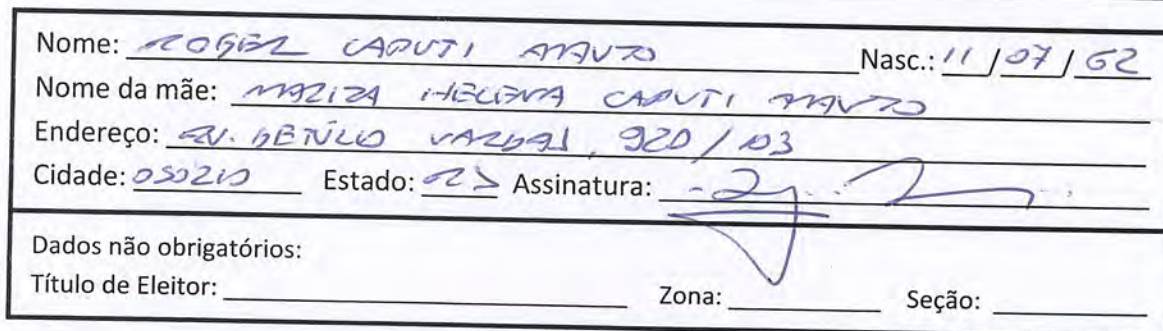 Nome: ROGER CAPUTI ARAUJO Nasc.: 11/07/62
Nome da mãe: MARIZA HELENA CAPUTI ARAUJO
Endereço: AV. GETÚLIO VARGAS, 920/03
Cidade: OSORIO Estado: RS Assinatura:
Dados não obrigatórios:
Título de Eleitor: Zona: Seção: